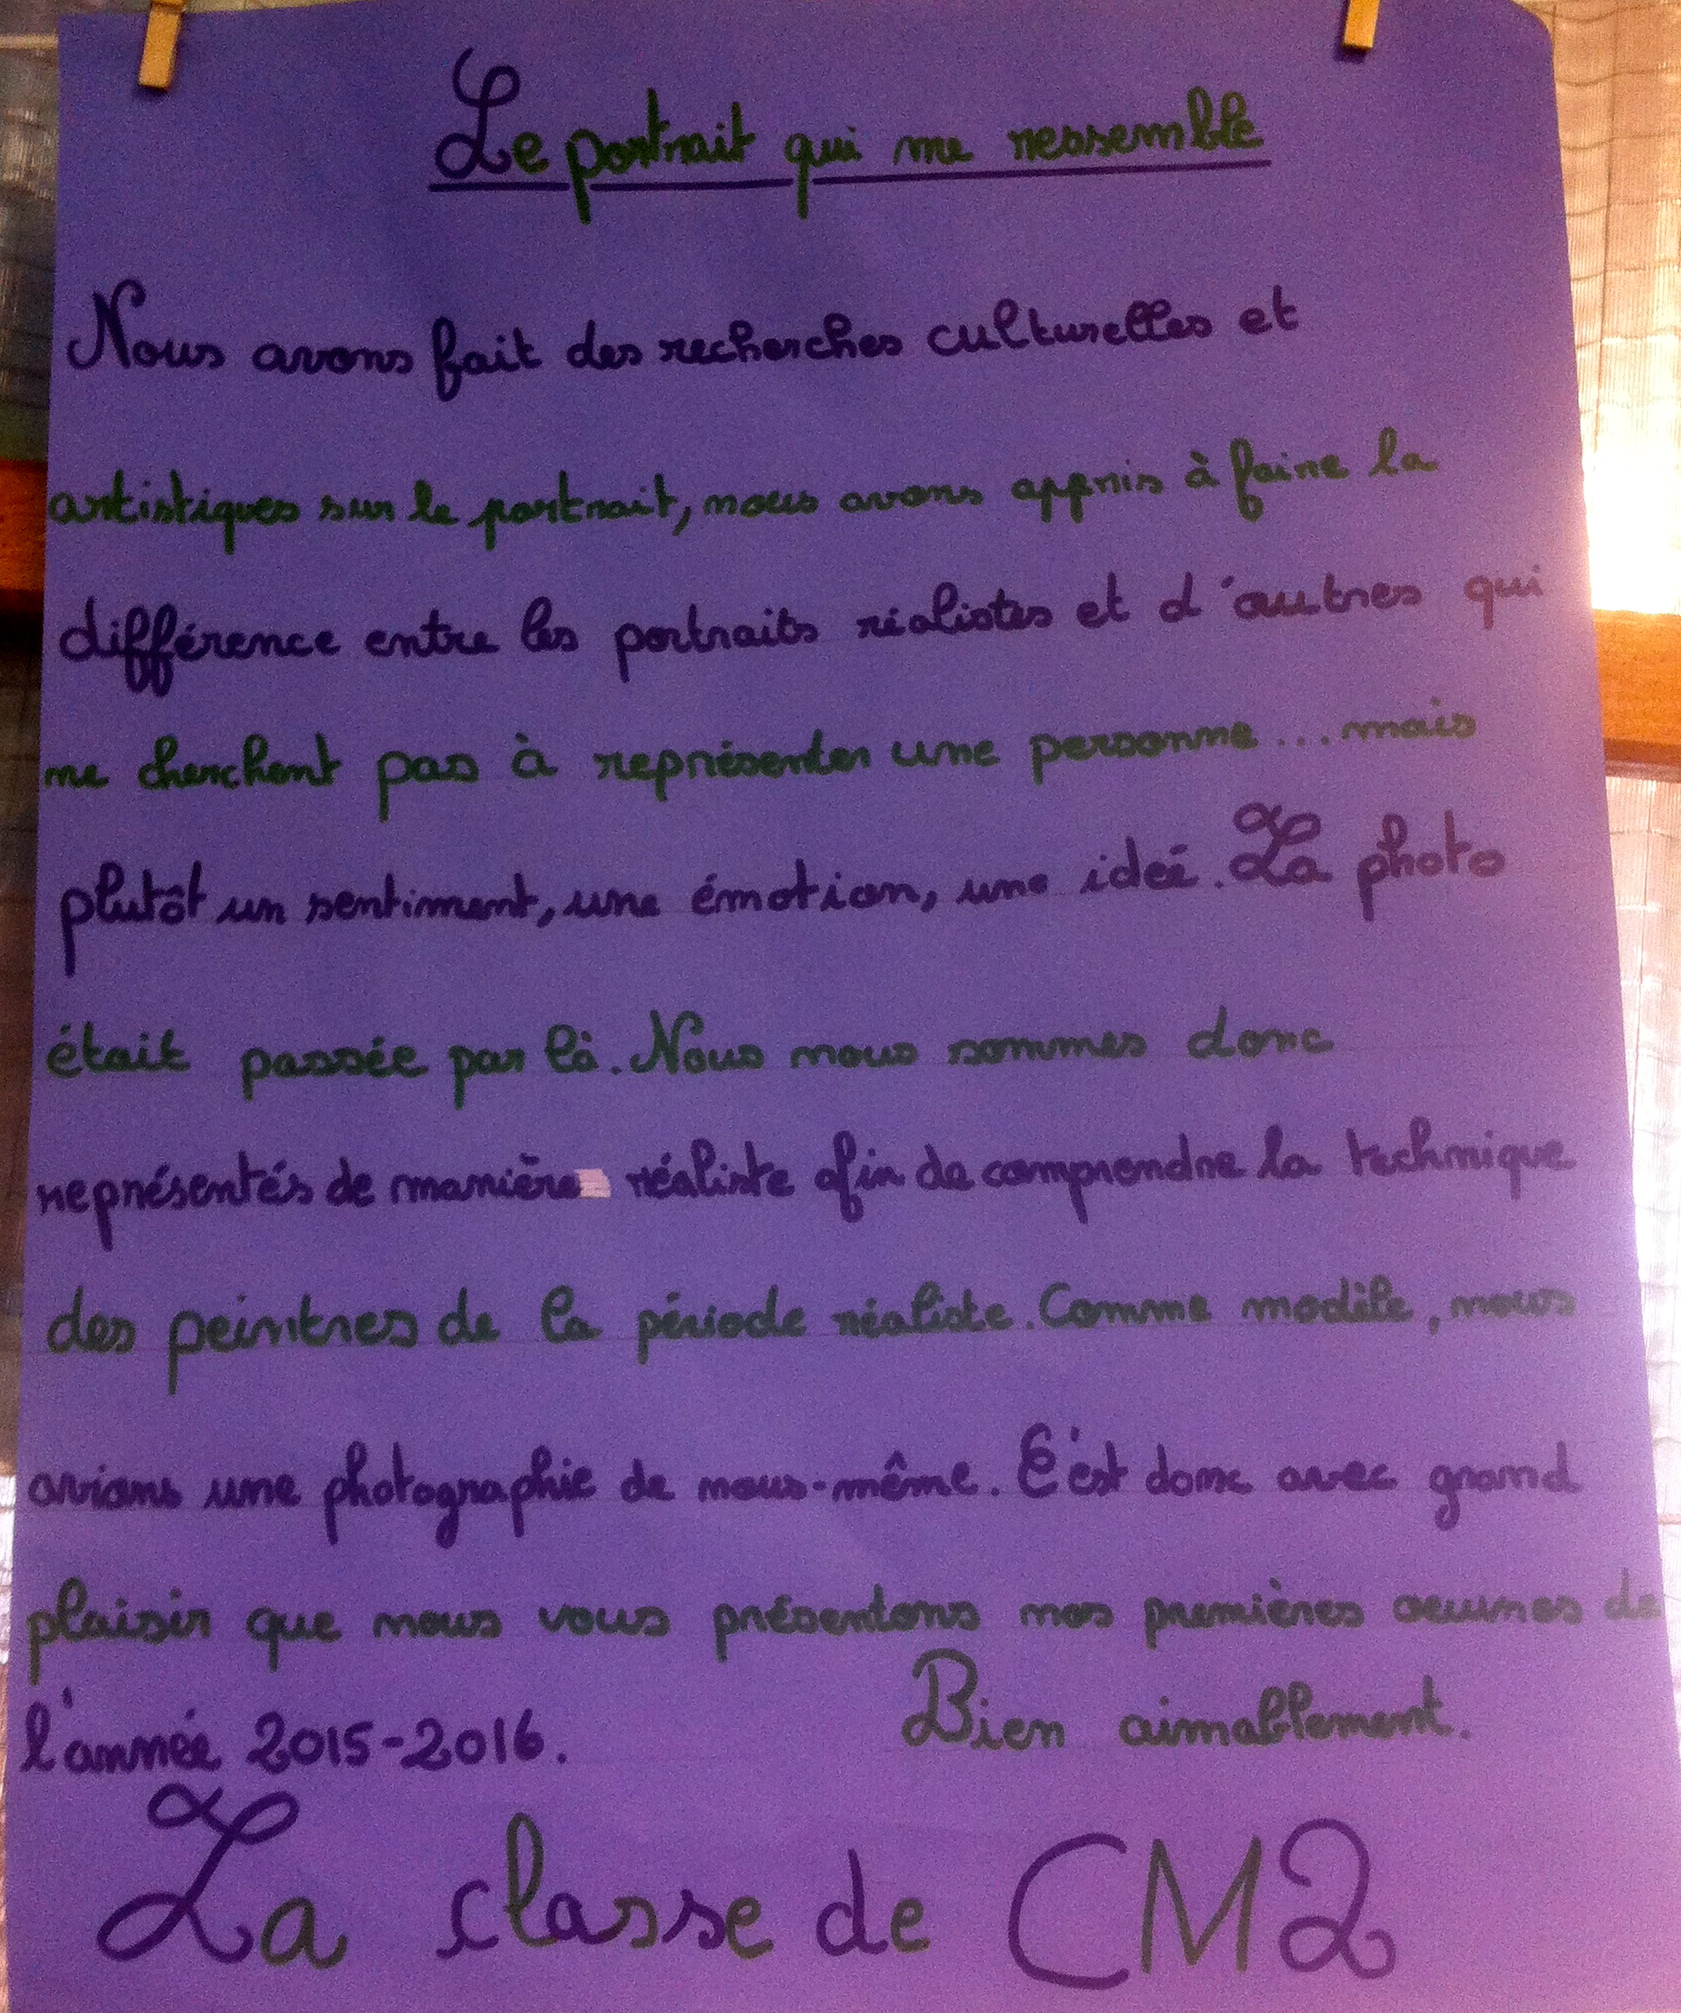 Le portrait qui me ressemble
Nous avons fait des recherches culturelles et
artistiques sur le portrait, nous avons appris à faire la
différence entre les portraits réalistes et d'autres qui
ne cherchent pas à représenter une personne... mais
plutôt un sentiment, une émotion, une ideé. La photo
était passée par là. Nous nous sommes donc
représentés de manière réaliste afin de comprendre la technique
des peintres de la période réaliste. Comme modèle, nous
avions une photographie de nous-même. C'est donc avec grand
plaisir que nous vous présentons nos premières oeuvres de
l'année 2015-2016. Bien aimablement.
La classe de CM2